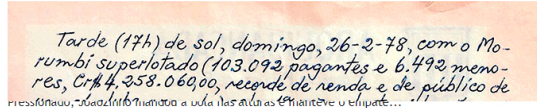 Tarde (17h) de sol, domingo, 26-2-78, com o Mo-
rumbi superlotado (103.092 pagantes e 6.492 meno-
res, Cr$4.258.060,00, recorde de renda e de público de
Pressionado, Joãozinho mandou a bola nas alturas e manteve o empate...